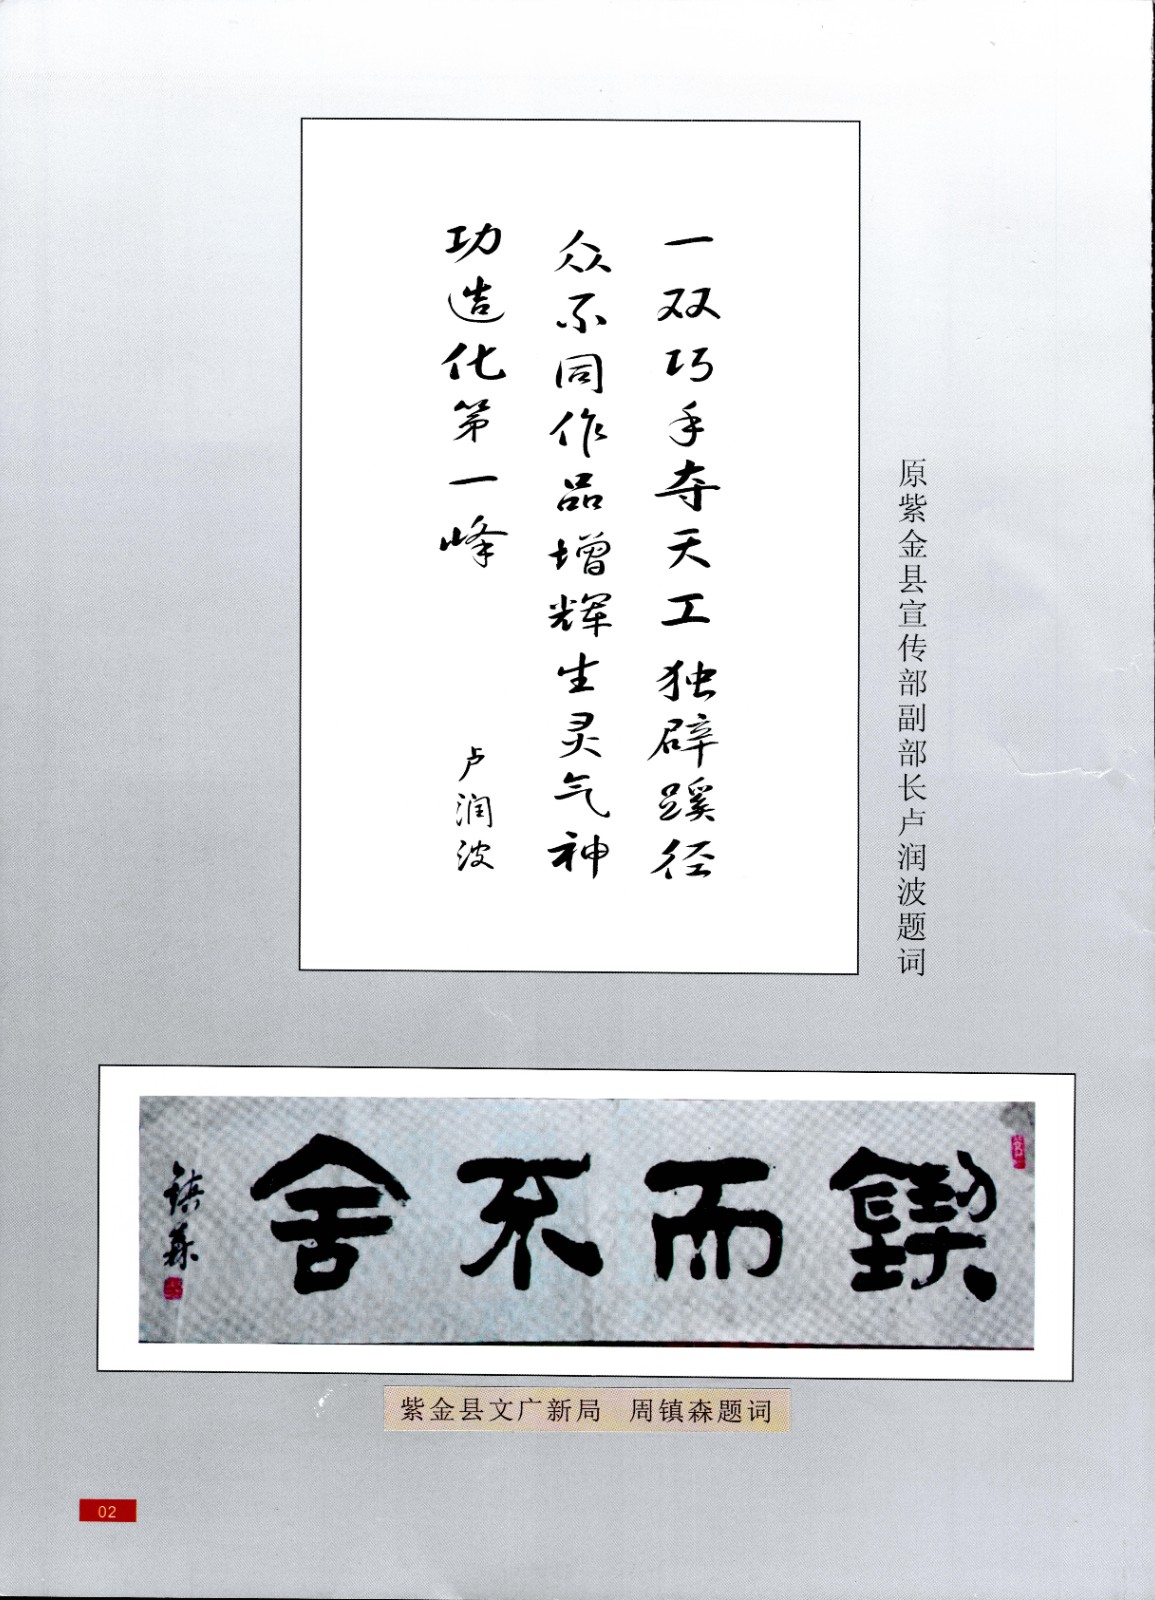 一双巧手夺天工独辟蹊径
众不同作品增辉生灵气神
功造化第一峰
卢润波
原紫金县宣传部副部长卢润波题词
锲而不舍
镇森
紫金县文广新局 周镇森题词
02